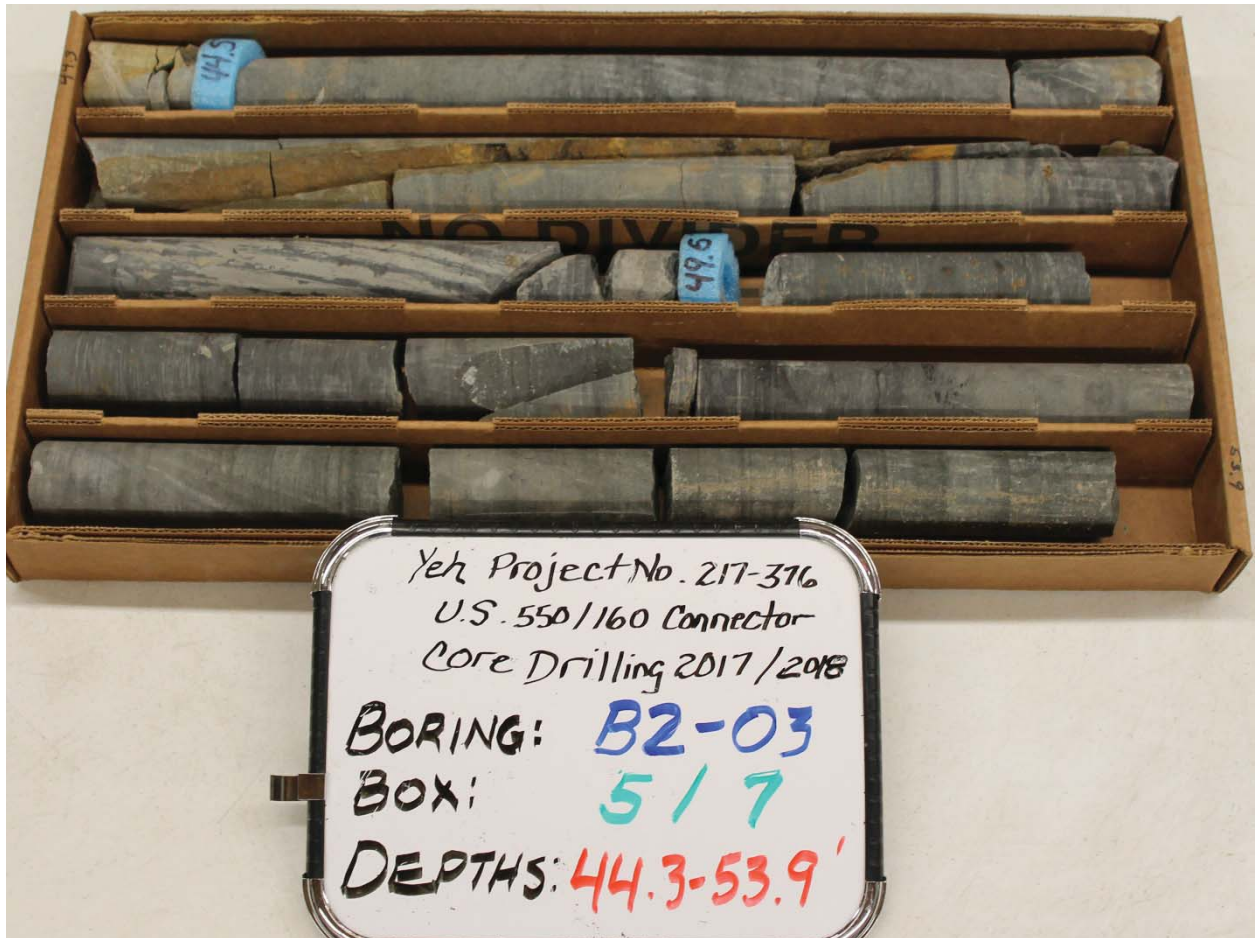 44.3
44.5
NO DIVIDER
49.6
53.9
Yeh Project No. 217-376
U.S. 550/160 Connector
Core Drilling 2017/2018
BORING: B2-03
BOX: 5/7
DEPTHS: 44.3-53.9'